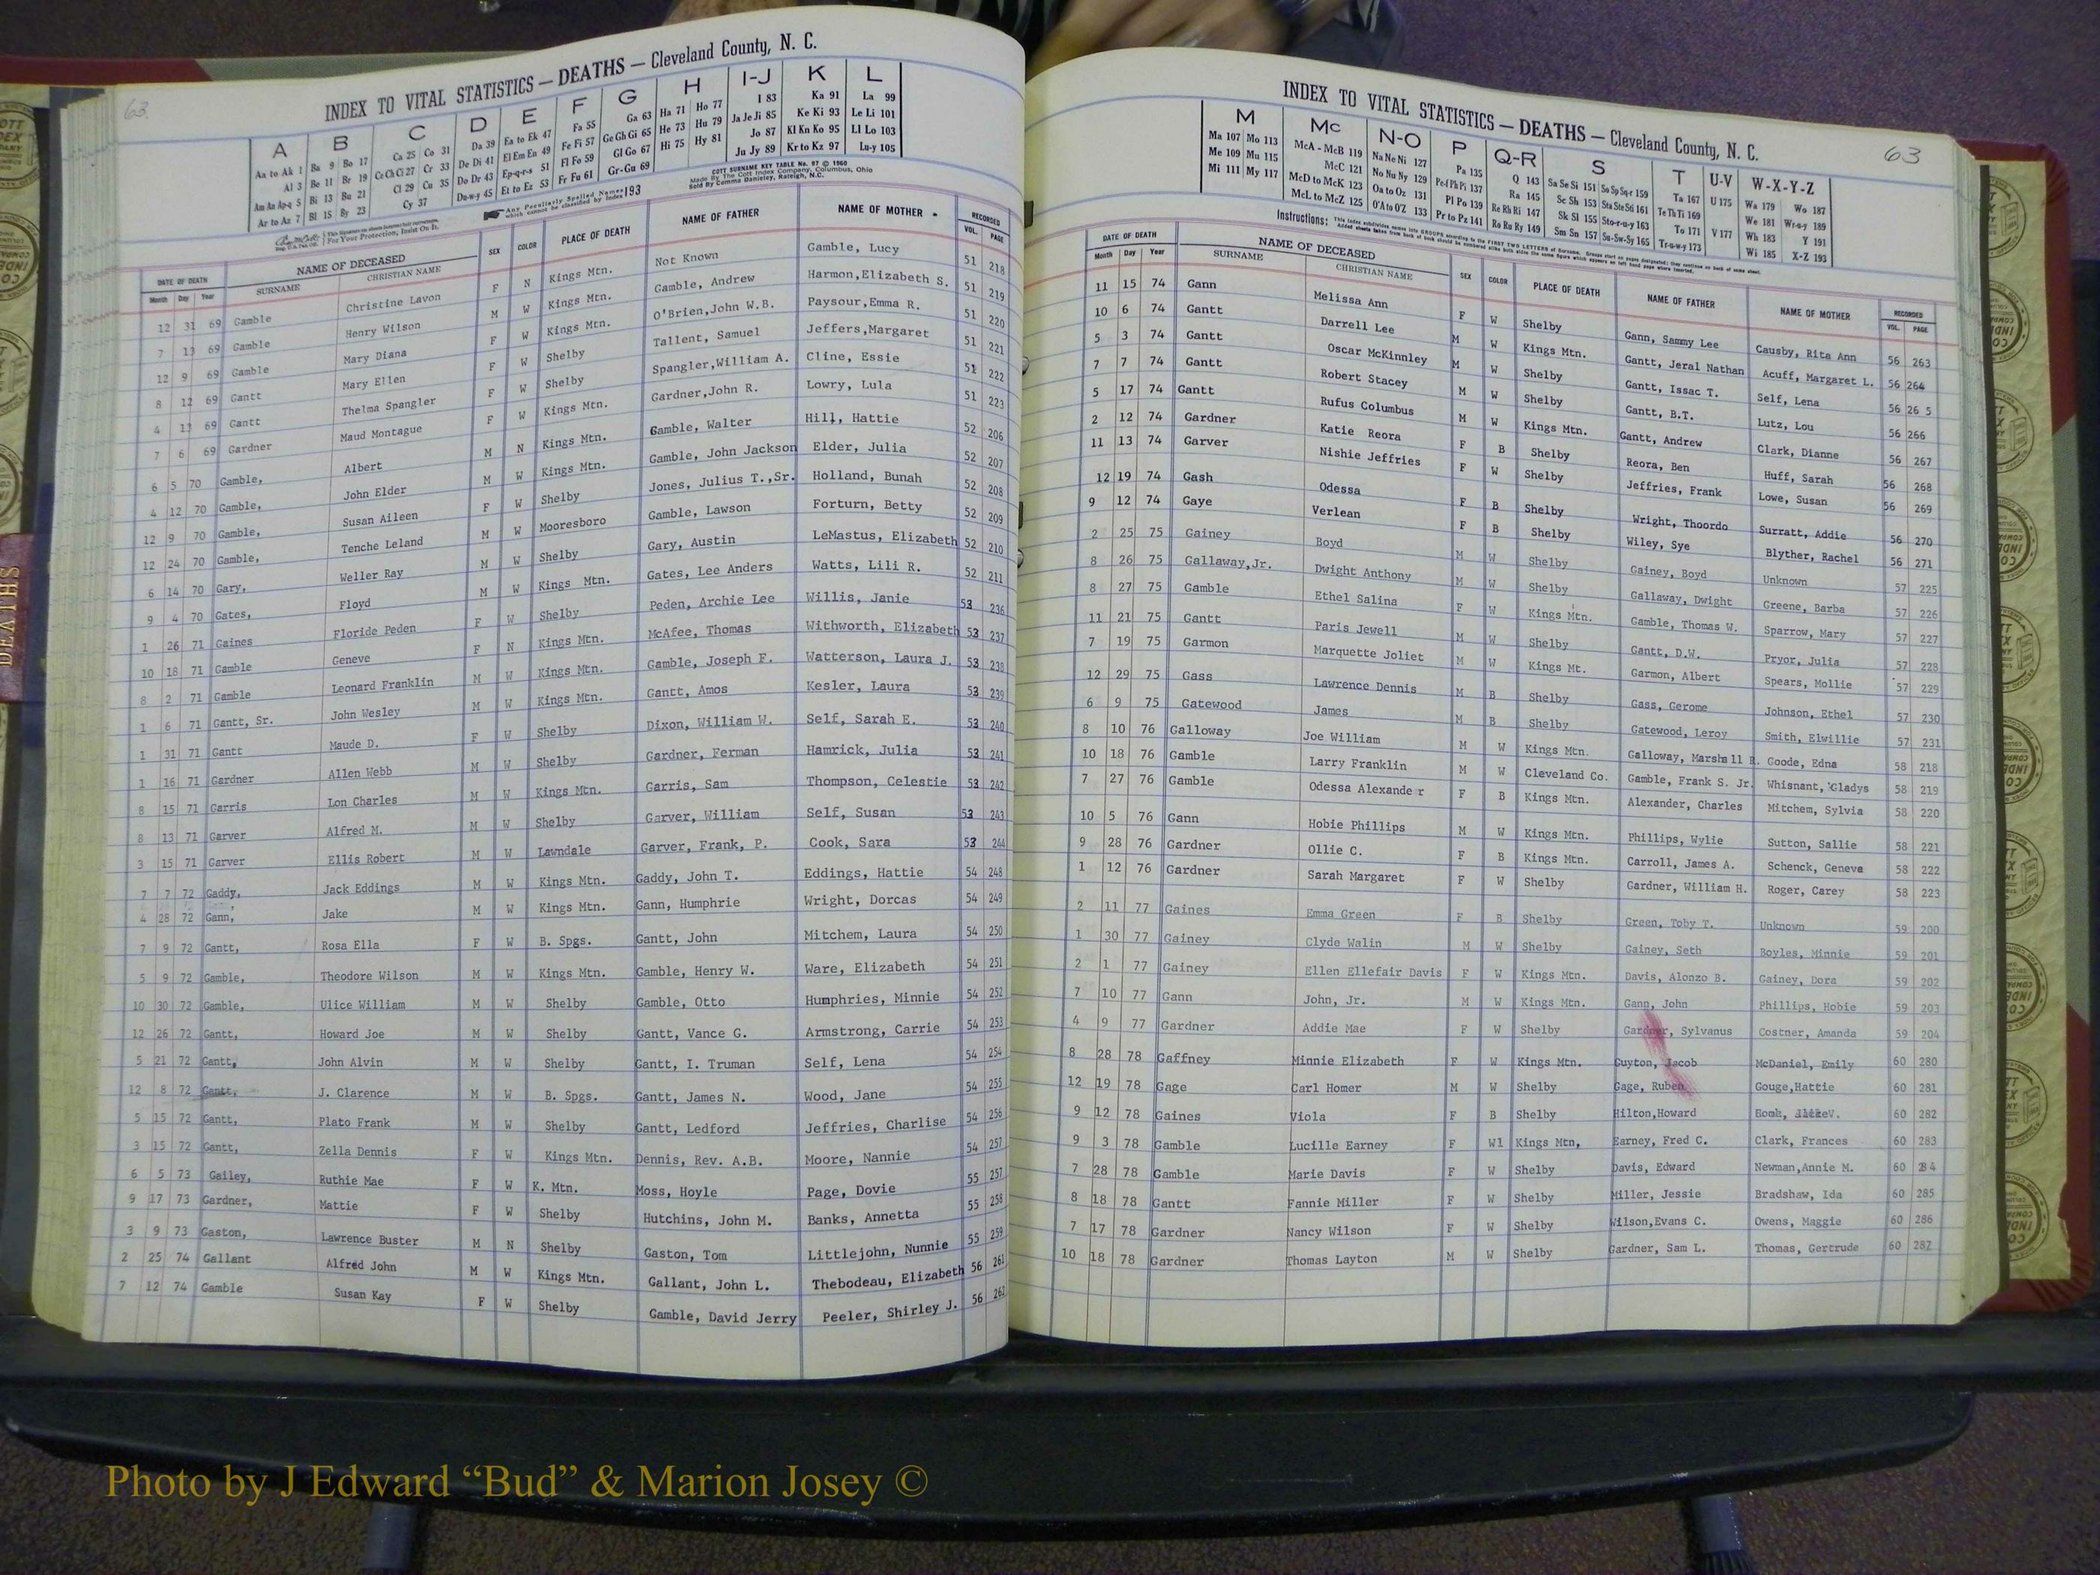 63
INDEX TO VITAL STATISTICS — DEATHS — Cleveland County, N. C.
A B C D E F G H I-J K L
Aa to Ak 1 Ba 9 Bo 17 Ca 25 Co 31 Da 39 Ea to Ek 47 Fa 55 Ga 63 Ha 71 Ho 77 I 83 Ka 91 La 99
Al 3 Be 11 Br 19 Ce Ch Ci 27 Cr 33 De Di 41 El Em En 49 Fe Fi 57 Ge Gh Gi 65 He 73 Hu 79 Ja Je Ji 85 Ke Ki 93 Le Li 101
Am An Ap-q 5 Bi 13 Bu 21 Cl 29 Cu 35 Do Dr 43 Ep-q-r-s 51 Fl Fo 59 Gl Go 67 Hi 75 Hy 81 Jo 87 Kl Kn Ko 95 Ll Lo 103
Ar to Az 7 Bl 15 By 23 Cy 37 Du-w-y 45 Et to Ez 53 Fr Fu 61 Gr-Gu 69 Ju Jy 89 Kr to Kz 97 Lu-y 105
COTT SURNAME KEY TABLE No. 97 © 1960
Made By The Cott Index Company, Columbus, Ohio
Sold By Cemma Danieley, Raleigh, N.C.
Any Peculiarly Spelled Names which cannot be classified by Index 193
For Your Protection, Insist On It.
DATE OF DEATH NAME OF DECEASED SEX COLOR PLACE OF DEATH NAME OF FATHER NAME OF MOTHER RECORDED
Month Day Year SURNAME CHRISTIAN NAME VOL. PAGE
12 31 69 Gamble Christine Lavon F N Kings Mtn. Not Known Gamble, Lucy 51 218
7 13 69 Gamble Henry Wilson M W Kings Mtn. Gamble, Andrew Harmon,Elizabeth S. 51 219
12 9 69 Gamble Mary Diana F W Kings Mtn. O'Brien,John W.B. Paysour,Emma R. 51 220
8 12 69 Gantt Mary Ellen F W Shelby Tallent, Samuel Jeffers,Margaret 51 221
4 13 69 Gantt Thelma Spangler F W Shelby Spangler,William A. Cline, Essie 51 222
7 6 69 Gardner Maud Montague F W Kings Mtn. Gardner,John R. Lowry, Lula 51 223
6 5 70 Gamble, Albert M N Kings Mtn. Gamble, Walter Hill, Hattie 52 206
4 12 70 Gamble, John Elder M W Kings Mtn. Gamble, John Jackson Elder, Julia 52 207
12 9 70 Gamble, Susan Aileen F W Shelby Jones, Julius T.,Sr. Holland, Bunah 52 208
12 24 70 Gamble, Tenche Leland M W Mooresboro Gamble, Lawson Forturn, Betty 52 209
6 14 70 Gary, Weller Ray M W Shelby Gary, Austin LeMastus, Elizabeth 52 210
9 4 70 Gates, Floyd M W Kings Mtn. Gates, Lee Anders Watts, Lili R. 52 211
1 26 71 Gaines Floride Peden F W Shelby Peden, Archie Lee Willis, Janie 53 236
10 18 71 Gamble Geneve F N Kings Mtn. McAfee, Thomas Withworth, Elizabeth 53 237
8 2 71 Gamble Leonard Franklin M W Kings Mtn. Gamble, Joseph F. Watterson, Laura J. 53 238
1 6 71 Gantt, Sr. John Wesley M W Kings Mtn. Gantt, Amos Kesler, Laura 53 239
1 31 71 Gantt Maude D. F W Shelby Dixon, William W. Self, Sarah E. 53 240
1 16 71 Gardner Allen Webb M W Shelby Gardner, Ferman Hamrick, Julia 53 241
8 15 71 Garris Lon Charles M W Kings Mtn. Garris, Sam Thompson, Celestie 53 242
8 13 71 Garver Alfred M. M W Shelby Garver, William Self, Susan 53 243
3 15 71 Garver Ellis Robert M W Lawndale Garver, Frank, P. Cook, Sara 53 244
7 7 72 Gaddy, Jack Eddings M W Kings Mtn. Gaddy, John T. Eddings, Hattie 54 248
4 28 72 Gann, Jake M W Kings Mtn. Gann, Humphrie Wright, Dorcas 54 249
7 9 72 Gantt, Rosa Ella F W B. Spgs. Gantt, John Mitchem, Laura 54 250
5 9 72 Gamble, Theodore Wilson M W Kings Mtn. Gamble, Henry W. Ware, Elizabeth 54 251
10 30 72 Gamble, Ulice William M W Shelby Gamble, Otto Humphries, Minnie 54 252
12 26 72 Gantt, Howard Joe M W Shelby Gantt, Vance G. Armstrong, Carrie 54 253
5 21 72 Gantt, John Alvin M W Shelby Gantt, I. Truman Self, Lena 54 254
12 8 72 Gantt, J. Clarence M W B. Spgs. Gantt, James N. Wood, Jane 54 255
5 15 72 Gantt, Plato Frank M W Shelby Gantt, Ledford Jeffries, Charlise 54 256
3 15 72 Gantt, Zella Dennis F W Kings Mtn. Dennis, Rev. A.B. Moore, Nannie 54 257
6 5 73 Gailey, Ruthie Mae F W K. Mtn. Moss, Hoyle Page, Dovie 55 257
9 17 73 Gardner, Mattie F W Shelby Hutchins, John M. Banks, Annetta 55 258
3 9 73 Gaston, Lawrence Buster M N Shelby Gaston, Tom Littlejohn, Nunnie 55 259
2 25 74 Gallant Alfred John M W Kings Mtn. Gallant, John L. Thebodeau, Elizabeth 56 261
7 12 74 Gamble Susan Kay F W Shelby Gamble, David Jerry Peeler, Shirley J. 56 262
INDEX TO VITAL STATISTICS — DEATHS — Cleveland County, N. C.
63
M Mc N-O P Q-R S T U-V W-X-Y-Z
Ma 107 Mo 113 McA - McB 119 Na Ne Ni 127 Pa 135 Q 143 Sa Se Si 151 So Sp Sq-r 159 Ta 167 U 175 Wa 179 Wo 187
Me 109 Mu 115 McC 121 No Nu Ny 129 Pe-f Ph Pi 137 Ra 145 Sc Sh 153 Sta Ste Sti 161 Te Th Ti 169 We 181 Wr-u-y 189
Mi 111 My 117 McD to McK 123 Oa to Oz 131 Pl Po 139 Re Rh Ri 147 Sk Sl 155 Sto-r-u-y 163 To 171 V 177 Wh 183 Y 191
McL to McZ 125 O'A to O'Z 133 Pr to Pz 141 Ro Ru Ry 149 Sm Sn 157 Su-Sw-Sy 165 Tr-u-w-y 173 Wi 185 X-Z 193
Instructions:
DATE OF DEATH NAME OF DECEASED SEX COLOR PLACE OF DEATH NAME OF FATHER NAME OF MOTHER RECORDED
Month Day Year SURNAME CHRISTIAN NAME VOL. PAGE
11 15 74 Gann Melissa Ann F W Shelby Gann, Sammy Lee Causby, Rita Ann 56 263
10 6 74 Gantt Darrell Lee M W Kings Mtn. Gantt, Jeral Nathan Acuff, Margaret L. 56 264
5 3 74 Gantt Oscar McKinnley M W Shelby Gantt, Issac T. Self, Lena 56 26 5
7 7 74 Gantt Robert Stacey M W Shelby Gantt, B.T. Lutz, Lou 56 266
5 17 74 Gantt Rufus Columbus M W Kings Mtn. Gantt, Andrew Clark, Dianne 56 267
2 12 74 Gardner Katie Reora F B Shelby Reora, Ben Huff, Sarah 56 268
11 13 74 Garver Nishie Jeffries F W Shelby Jeffries, Frank Lowe, Susan 56 269
12 19 74 Gash Odessa F B Shelby Wright, Thoordo Surratt, Addie 56 270
9 12 74 Gaye Verlean F B Shelby Wiley, Sye Blyther, Rachel 56 271
2 25 75 Gainey Boyd M W Shelby Gainey, Boyd Unknown 57 225
8 26 75 Gallaway,Jr. Dwight Anthony M W Shelby Gallaway, Dwight Greene, Barba 57 226
8 27 75 Gamble Ethel Salina F W Kings Mtn. Gamble, Thomas W. Sparrow, Mary 57 227
11 21 75 Gantt Paris Jewell M W Shelby Gantt, D.W. Pryor, Julia 57 228
7 19 75 Garmon Marquette Joliet M W Kings Mt. Garmon, Albert Spears, Mollie 57 229
12 29 75 Gass Lawrence Dennis M B Shelby Gass, Gerome Johnson, Ethel 57 230
6 9 75 Gatewood James M B Shelby Gatewood, Leroy Smith, Elwillie 57 231
8 10 76 Galloway Joe William M W Kings Mtn. Galloway, Marshall R. Goode, Edna 58 218
10 18 76 Gamble Larry Franklin M W Cleveland Co. Gamble, Frank S. Jr. Whisnant, Gladys 58 219
7 27 76 Gamble Odessa Alexander F B Kings Mtn. Alexander, Charles Mitchem, Sylvia 58 220
10 5 76 Gann Hobie Phillips M W Kings Mtn. Phillips, Wylie Sutton, Sallie 58 221
9 28 76 Gardner Ollie C. F B Kings Mtn. Carroll, James A. Schenck, Geneva 58 222
1 12 76 Gardner Sarah Margaret F W Shelby Gardner, William H. Roger, Carey 58 223
2 11 77 Gaines Emma Green F B Shelby Green, Toby T. Unknown 59 200
1 30 77 Gainey Clyde Walin M W Shelby Gainey, Seth Boyles, Minnie 59 201
2 1 77 Gainey Ellen Ellefair Davis F W Kings Mtn. Davis, Alonzo B. Gainey, Dora 59 202
7 10 77 Gann John, Jr. M W Kings Mtn. Gann, John Phillips, Hobie 59 203
4 9 77 Gardner Addie Mae F W Shelby Gardner, Sylvanus Costner, Amanda 59 204
8 28 78 Gaffney Minnie Elizabeth F W Kings Mtn. Guyton, Jacob McDaniel, Emily 60 280
12 19 78 Gage Carl Homer M W Shelby Gage, Ruben Gouge,Hattie 60 281
9 12 78 Gaines Viola F B Shelby Hilton,Howard 60 282
9 3 78 Gamble Lucille Earney F W1 Kings Mtn, Earney, Fred C. Clark, Frances 60 283
7 28 78 Gamble Marie Davis F W Shelby Davis, Edward Newman,Annie M. 60 284
8 18 78 Gantt Fannie Miller F W Shelby Miller, Jessie Bradshaw, Ida 60 285
7 17 78 Gardner Nancy Wilson F W Shelby Wilson,Evans C. Owens, Maggie 60 286
10 18 78 Gardner Thomas Layton M W Shelby Gardner, Sam L. Thomas, Gertrude 60 287
DEATHS
Photo by J Edward “Bud” & Marion Josey ©